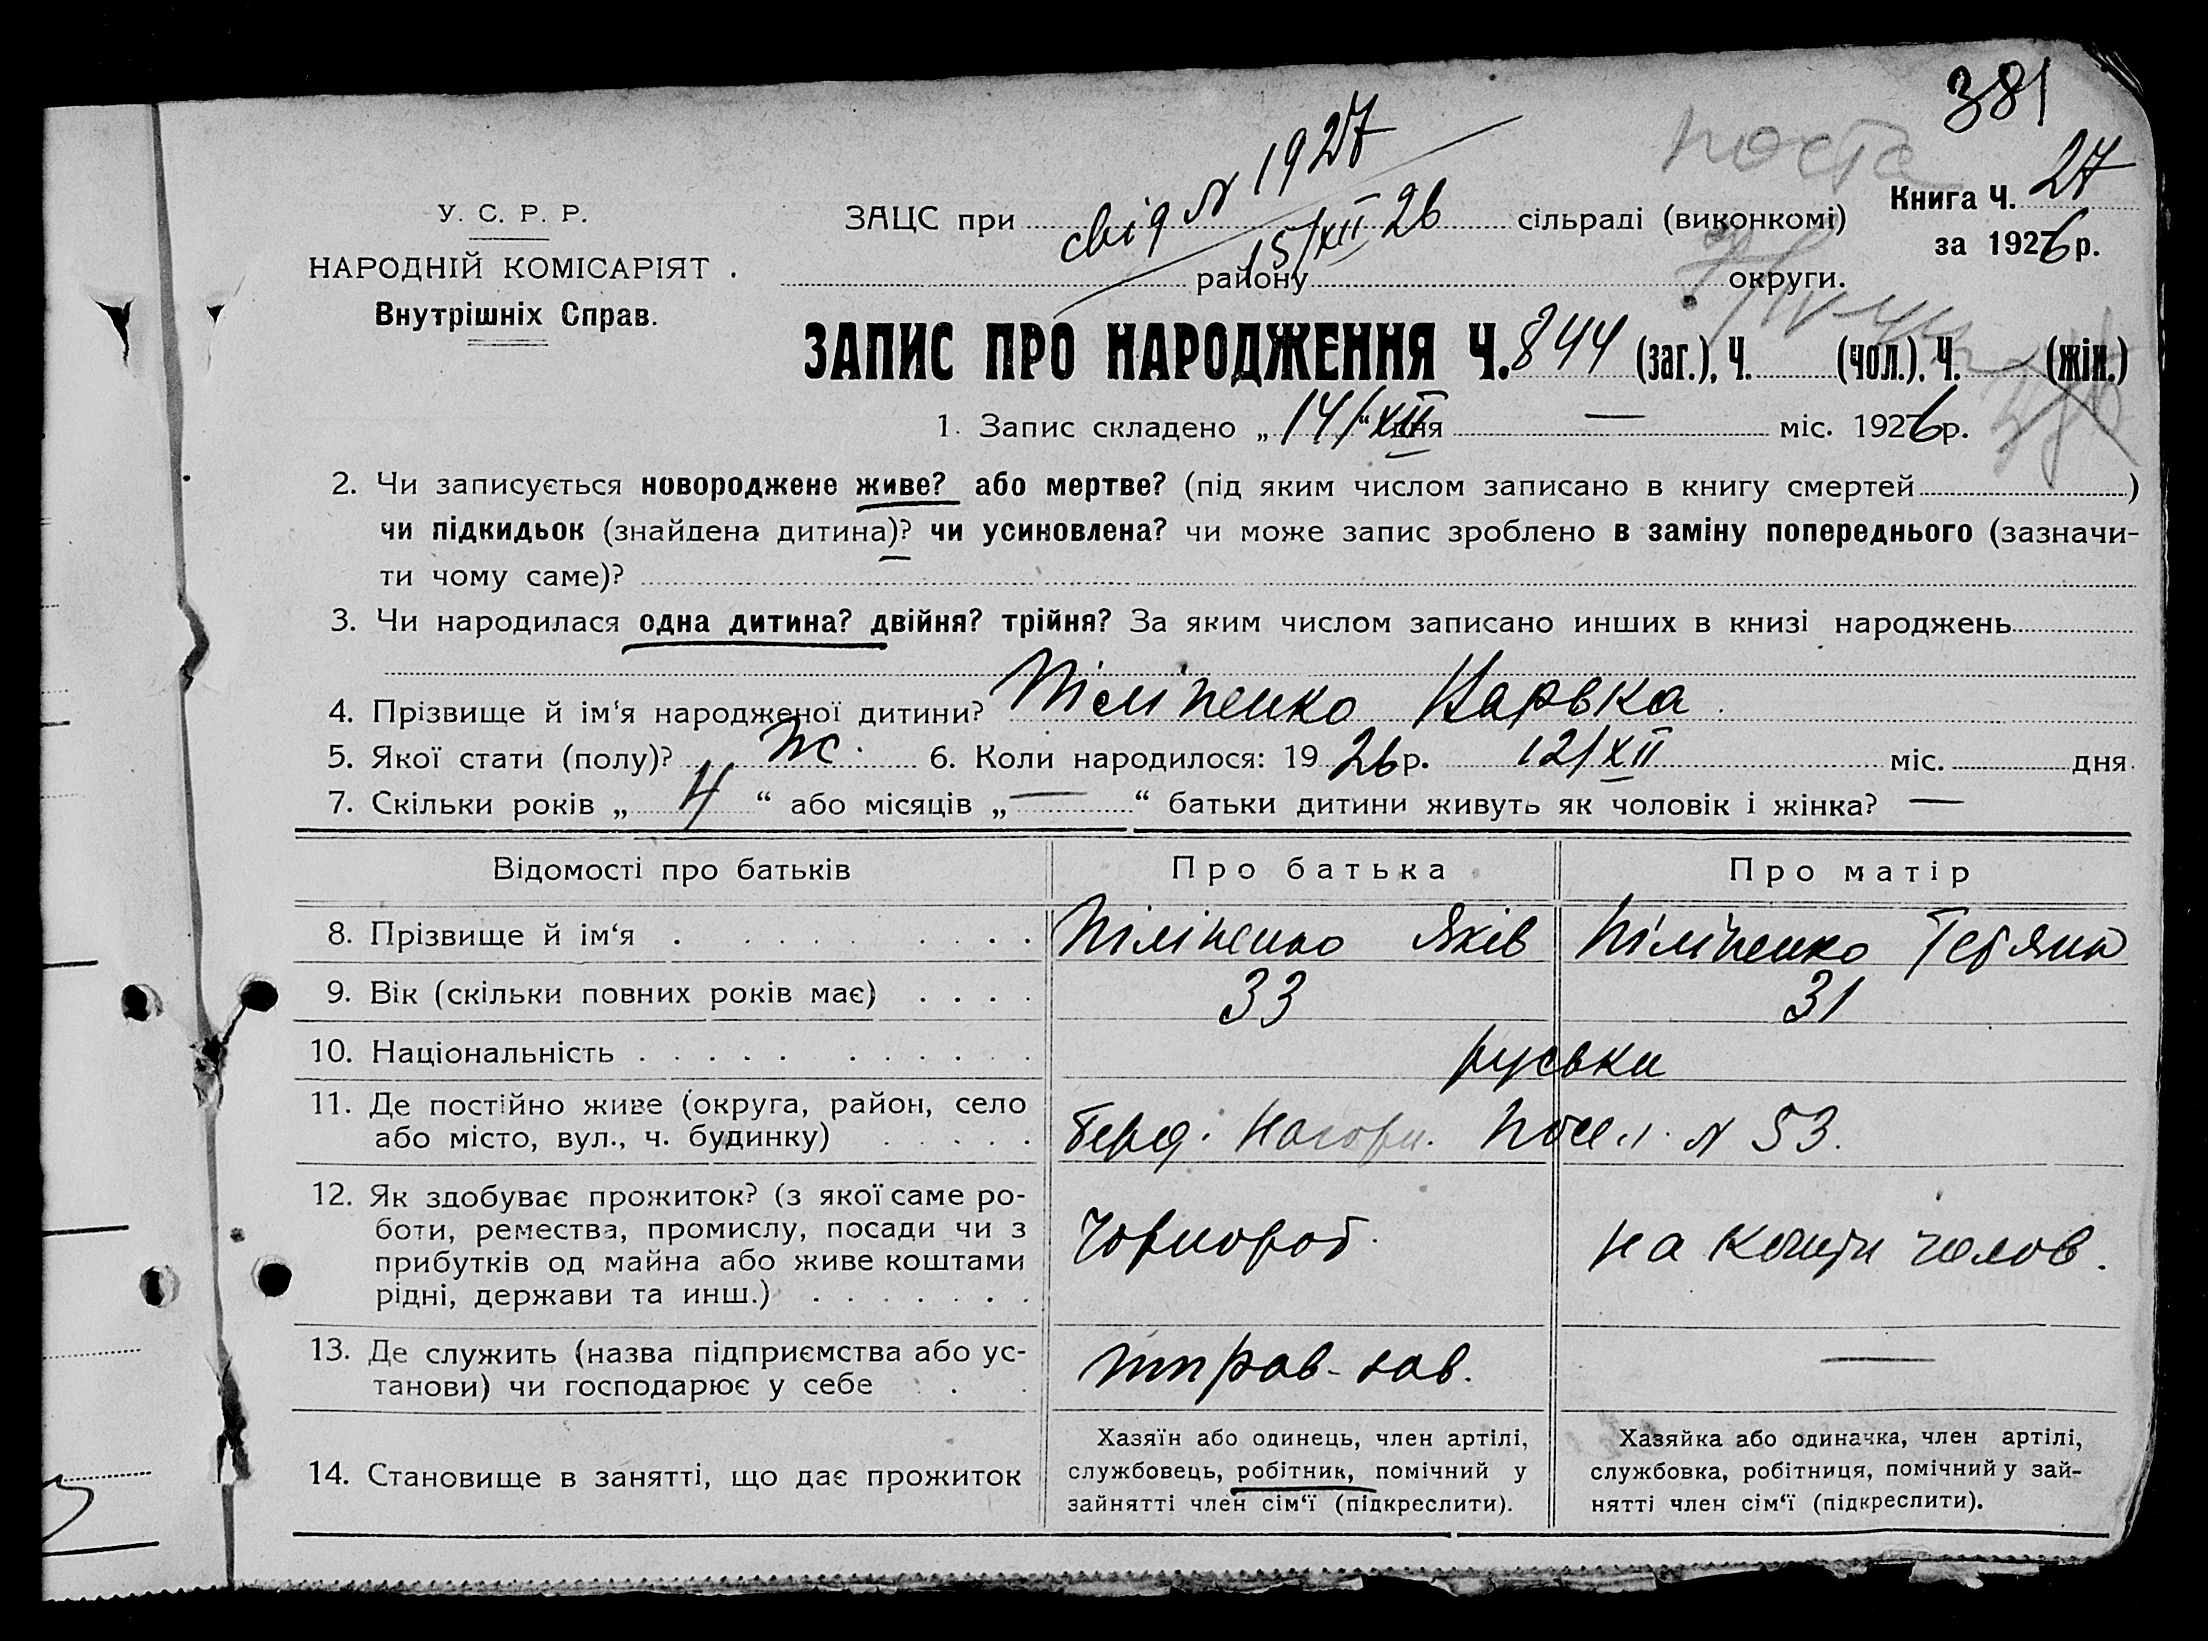 381
У. С. Р. Р.
НАРОДНІЙ КОМІСАРІЯТ.
Внутрішніх Справ.
Книга Ч. 27
за 1926 р.
ЗАЦС при свід N 1927 сільраді (виконкомі)
15/XII 26
району округи.
ЗАПИС ПРО НАРОДЖЕННЯ Ч. 844 (заг.), Ч. (чол.), Ч. (жін.)
1. Запис складено „14/XII“ дня — міс. 1926 р.
2. Чи записується новороджене живе? або мертве? (під яким числом записано в книгу смертей )
чи підкидьок (знайдена дитина)? чи усиновлена? чи може запис зроблено в заміну попереднього (зазначи-
ти чому саме)?
3. Чи народилася одна дитина? двійня? трійня? За яким числом записано инших в книзі народжень
4. Прізвище й ім‘я народженої дитини? Піліпенко
5. Якої стати (полу)? ж. 6. Коли народилося: 1926 р. 12/XII міс. дня
7. Скільки років „ 4 “ або місяців „ — “ батьки дитини живуть як чоловік і жінка? —
Відомості про батьків Про батька Про матір
8. Прізвище й ім‘я Піліпенко Яків Піліпенко Тетяна
9. Вік (скільки повних років має) 33 31
10. Національність руськи
11. Де постійно живе (округа, район, село
або місто, вул., ч. будинку) Берд. Нагорн. Посел. N 53.
12. Як здобуває прожиток? (з якої саме ро-
боти, ремества, промислу, посади чи з
прибутків од майна або живе коштами
рідні, держави та инш.)
Чорнороб. на кошти чолов.
13. Де служить (назва підприємства або ус-
танови) чи господарює у себе зав. —
14. Становище в занятті, що дає прожиток
Хазяїн або одинець, член артілі,
службовець, робітник, помічний у
зайнятті член сім‘ї (підкреслити).
Хазяйка або одиначка, член артілі,
службовка, робітниця, помічний у зай-
нятті член сім‘ї (підкреслити).